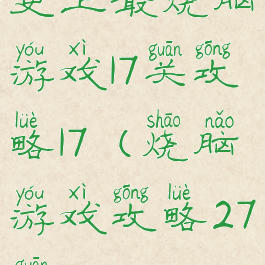 史上最烧脑
yóu xì guān gōng
游戏17关攻
lüè shāo nǎo
略17（烧脑
yóu xì gōng lüè
游戏攻略27
guān